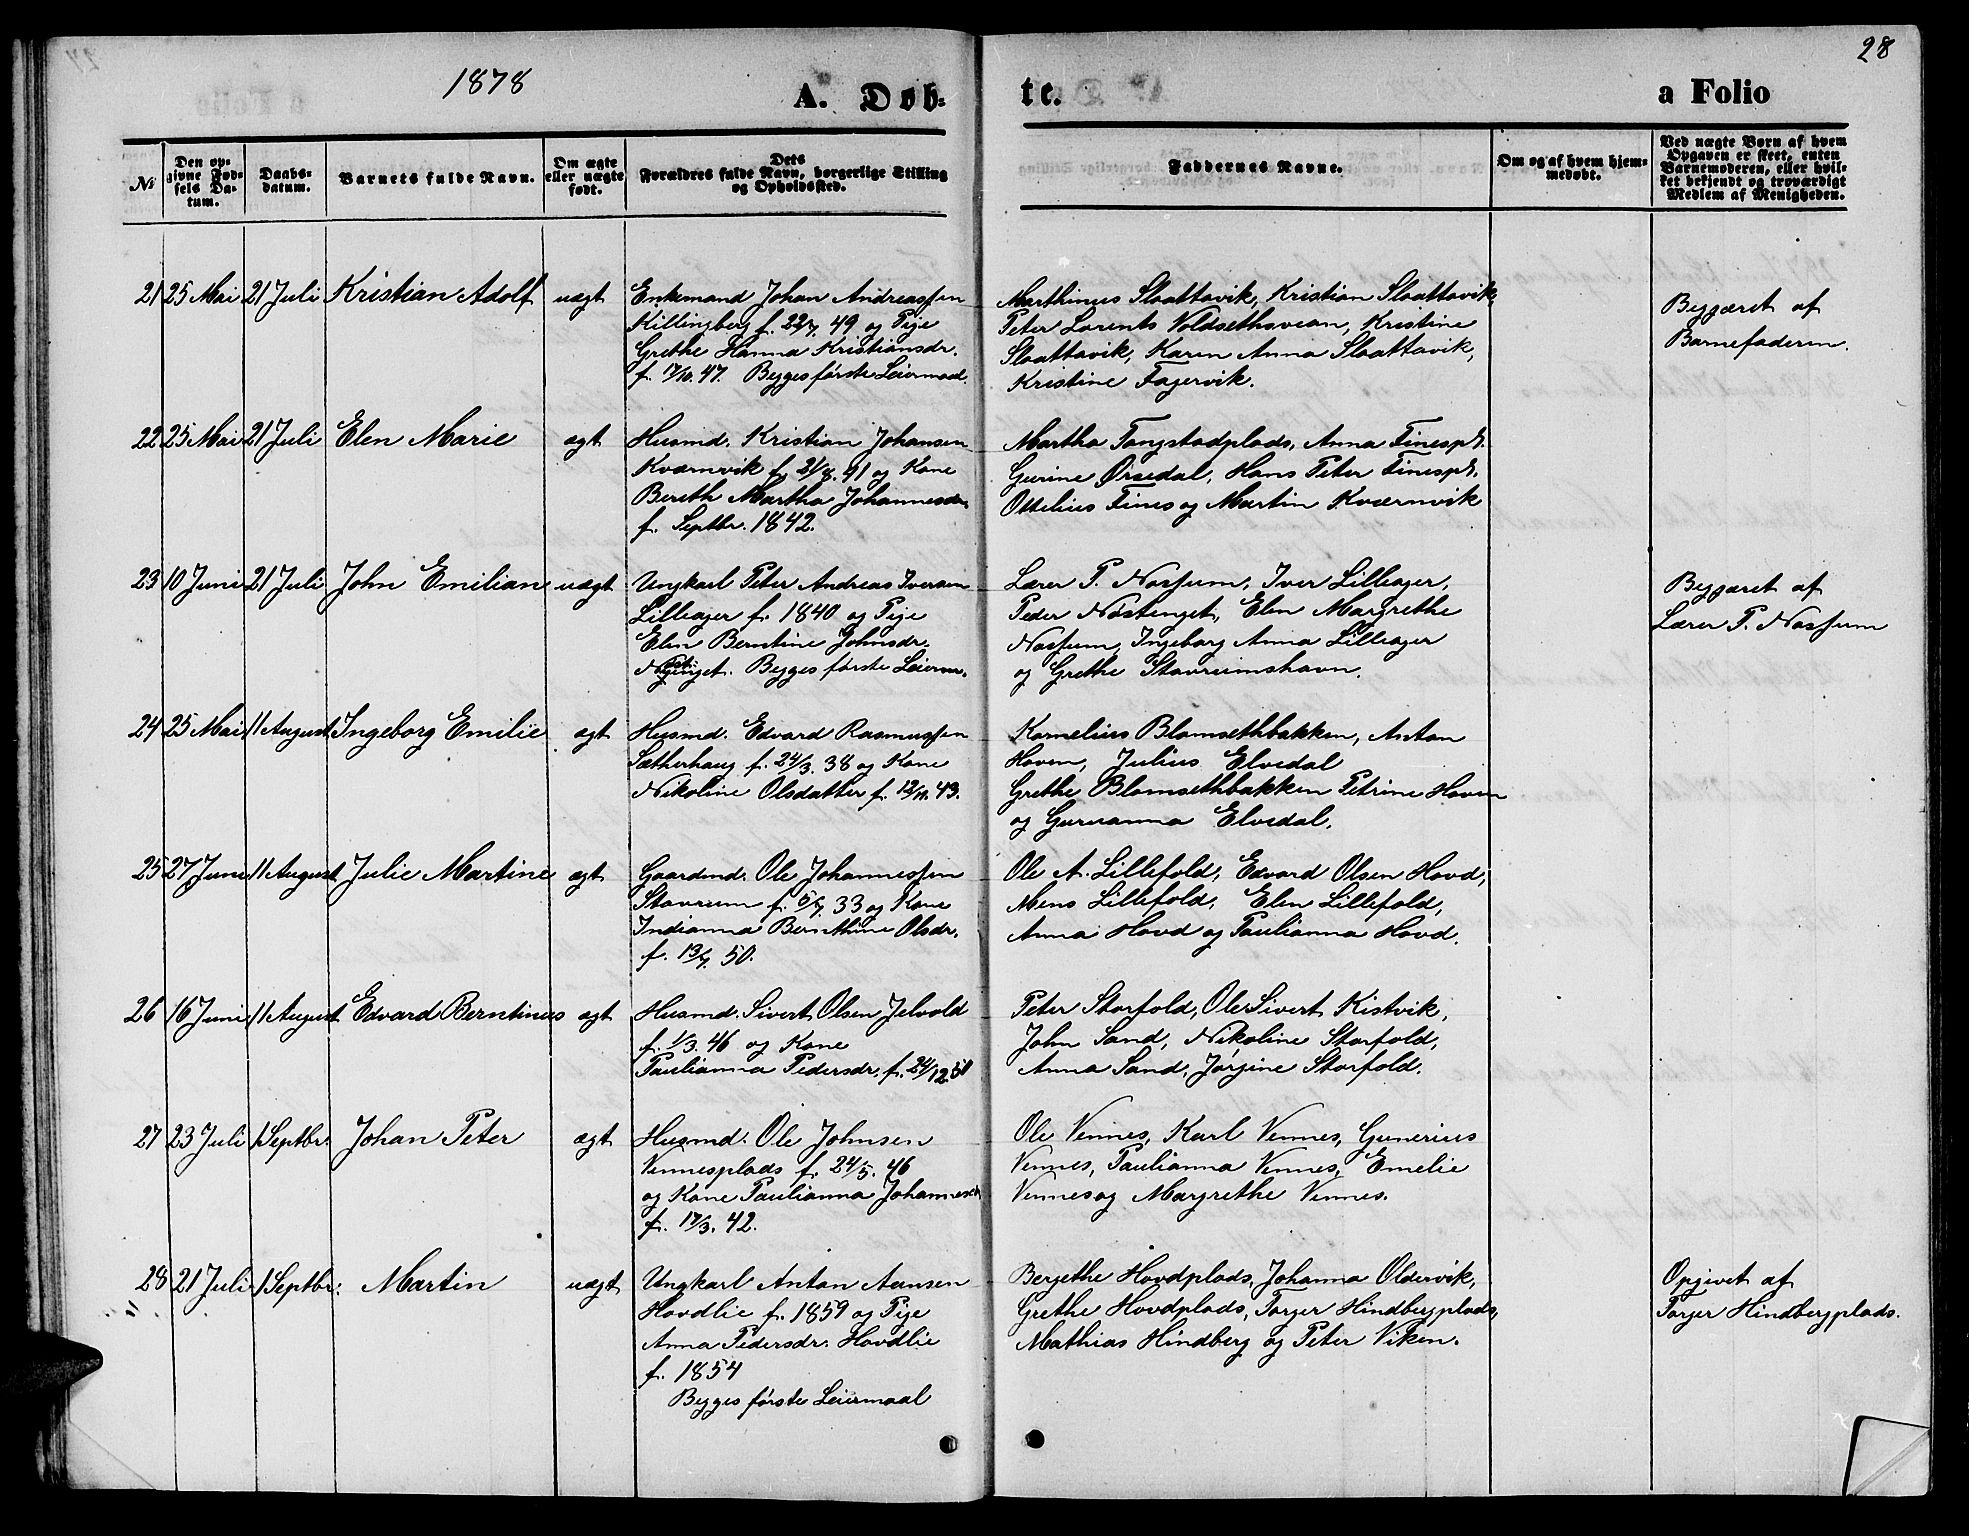 1878
28
A. Døb-
te.
a Folio
№
Den op-
givne Fød-
sels Da-
tum.
Daabs-
datum.
Barnets fulde Navn.
Om ægte
eller uægte
født.
Dets
Forældres fulde Navn, borgerlige Stilling
og Opholdssted.
Faddernes Navne.
Om og af hvem hjem-
medøbt.
Ved uægte Børn af hvem
Opgaven er skeet, enten
Barnemoderen, eller hvil-
ket bekjendt og troværdigt
Medlem af Menigheden.
21 25 Mai 21 Juli Kristian Adolf uægt
Enkemand Johan Andreassen
Killingberg f. 22/7. 49 og Pige
Grethe Hanna Kristiansdr.
f. 17/10. 47. Begges første Leiermaal.
Marthinus Slaattavik, Kristian Slaattavik,
Peter Lorents Voldsethsveian, Kristine
Slaattavik, Karen Anna Slaattavik,
Kristine Fagervik.
Begjæret af
Barnefaderen.
22 25 Mai 21 Juli Elen Marie ægt
Husmd. Kristian Johansen
Kværnvik f. 21/8. 41 og Kone
Bereth Martha Johannesdr.
f. Septbr. 1842.
Martha Tangstadplads, Anna Finespl.
Gurine Ørsedal, Hans Peter Finespl.
Ottelius Fines og Martin Kværnvik
23 10 Juni 21 Juli John Emilian uægt
Ungkarl Peter Andreas Iversen
Lilleager f. 1840 og Pige
Elen Berntine Johnsdr.
Begges første Leierm.
Lærer P. Nossum, Iver Lilleager,
Peder Nøstenget, Elen Margrethe
Nossum, Ingeborg Anna Lilleager
og Grethe Stavrumshavn.
Begjæret af
Lærer P. Nossum
24 25 Mai 11 August Ingeborg Emilie ægt
Husmd. Edvard Rasmussen
Sætherhaug f. 24/3. 38 og Kone
Nikoline Olsdatter f. 12/11. 43.
Kornelius Blomsethbakken, Anton
Hoven, Julius Elvedal
Grethe Blomsethbakken Petrine Hoven
og Guruanna Elvedal.
25 27 Juni 11 August Julie Martine ægt
Gaardmd. Ole Johannessen
Stavrum f. 5/7. 33 og Kone
Indianna Bernthine Olsdr.
f. 13/7. 50.
Ole A. Lillefold, Edvard Olsen Hovd,
Mens Lillefold, Elen Lillefold,
Anna Hovd og Paulianna Hovd.
26 16 Juni 11 August Edvard Berntinus ægt
Husmd. Sivert Olsen Jelvold
f. 1/3. 46 og Kone
Paulianna Pedersdr. f. 24/12.51
Peter Storfold, Ole Sivert Kistvik,
John Sand, Nikoline Storfold,
Anna Sand, Jørgine Storfold.
27 23 Juli 1 Septbr: Johan Peter ægt
Husmd. Ole Johnsen
Vennesplads f. 24/5. 46
og Kone Paulianna Johannesdr
f. 17/3. 42.
Ole Vennes, Karl Vennes, Gunerius
Vennes, Paulianna Vennes, Emelie
Vennes og Margrethe Vennes.
28 21 Juli 1 Septbr: Martin uægt
Ungkarl Anton Aunsen
Hovdlie f. 1859 og Pige
Anna Pedersdr. Hovdlie
f. 1854
Begges første Leiermaal
Bergethe Hovdplads, Johanna Oldervik,
Grethe Hovdplads, Torger Hindbergplads,
Mathias Hindberg og Peter Viken.
Opgivet af
Torger Hindbergplads.